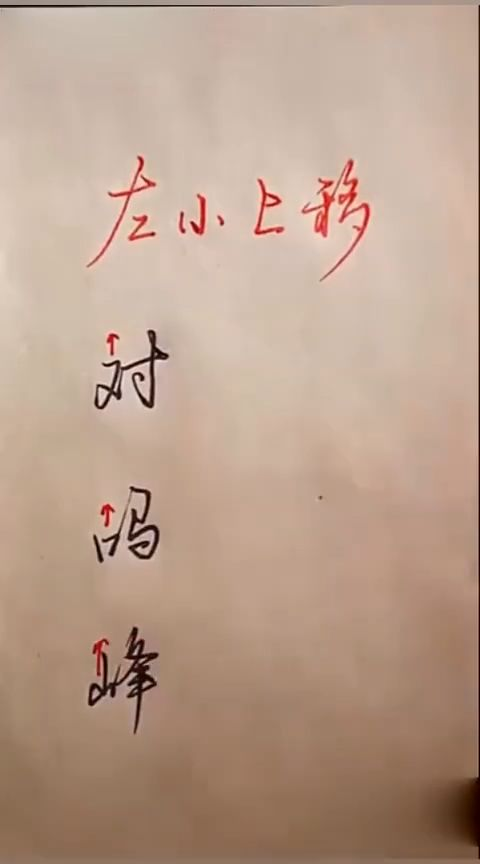 左小上移
对
鸣
峰